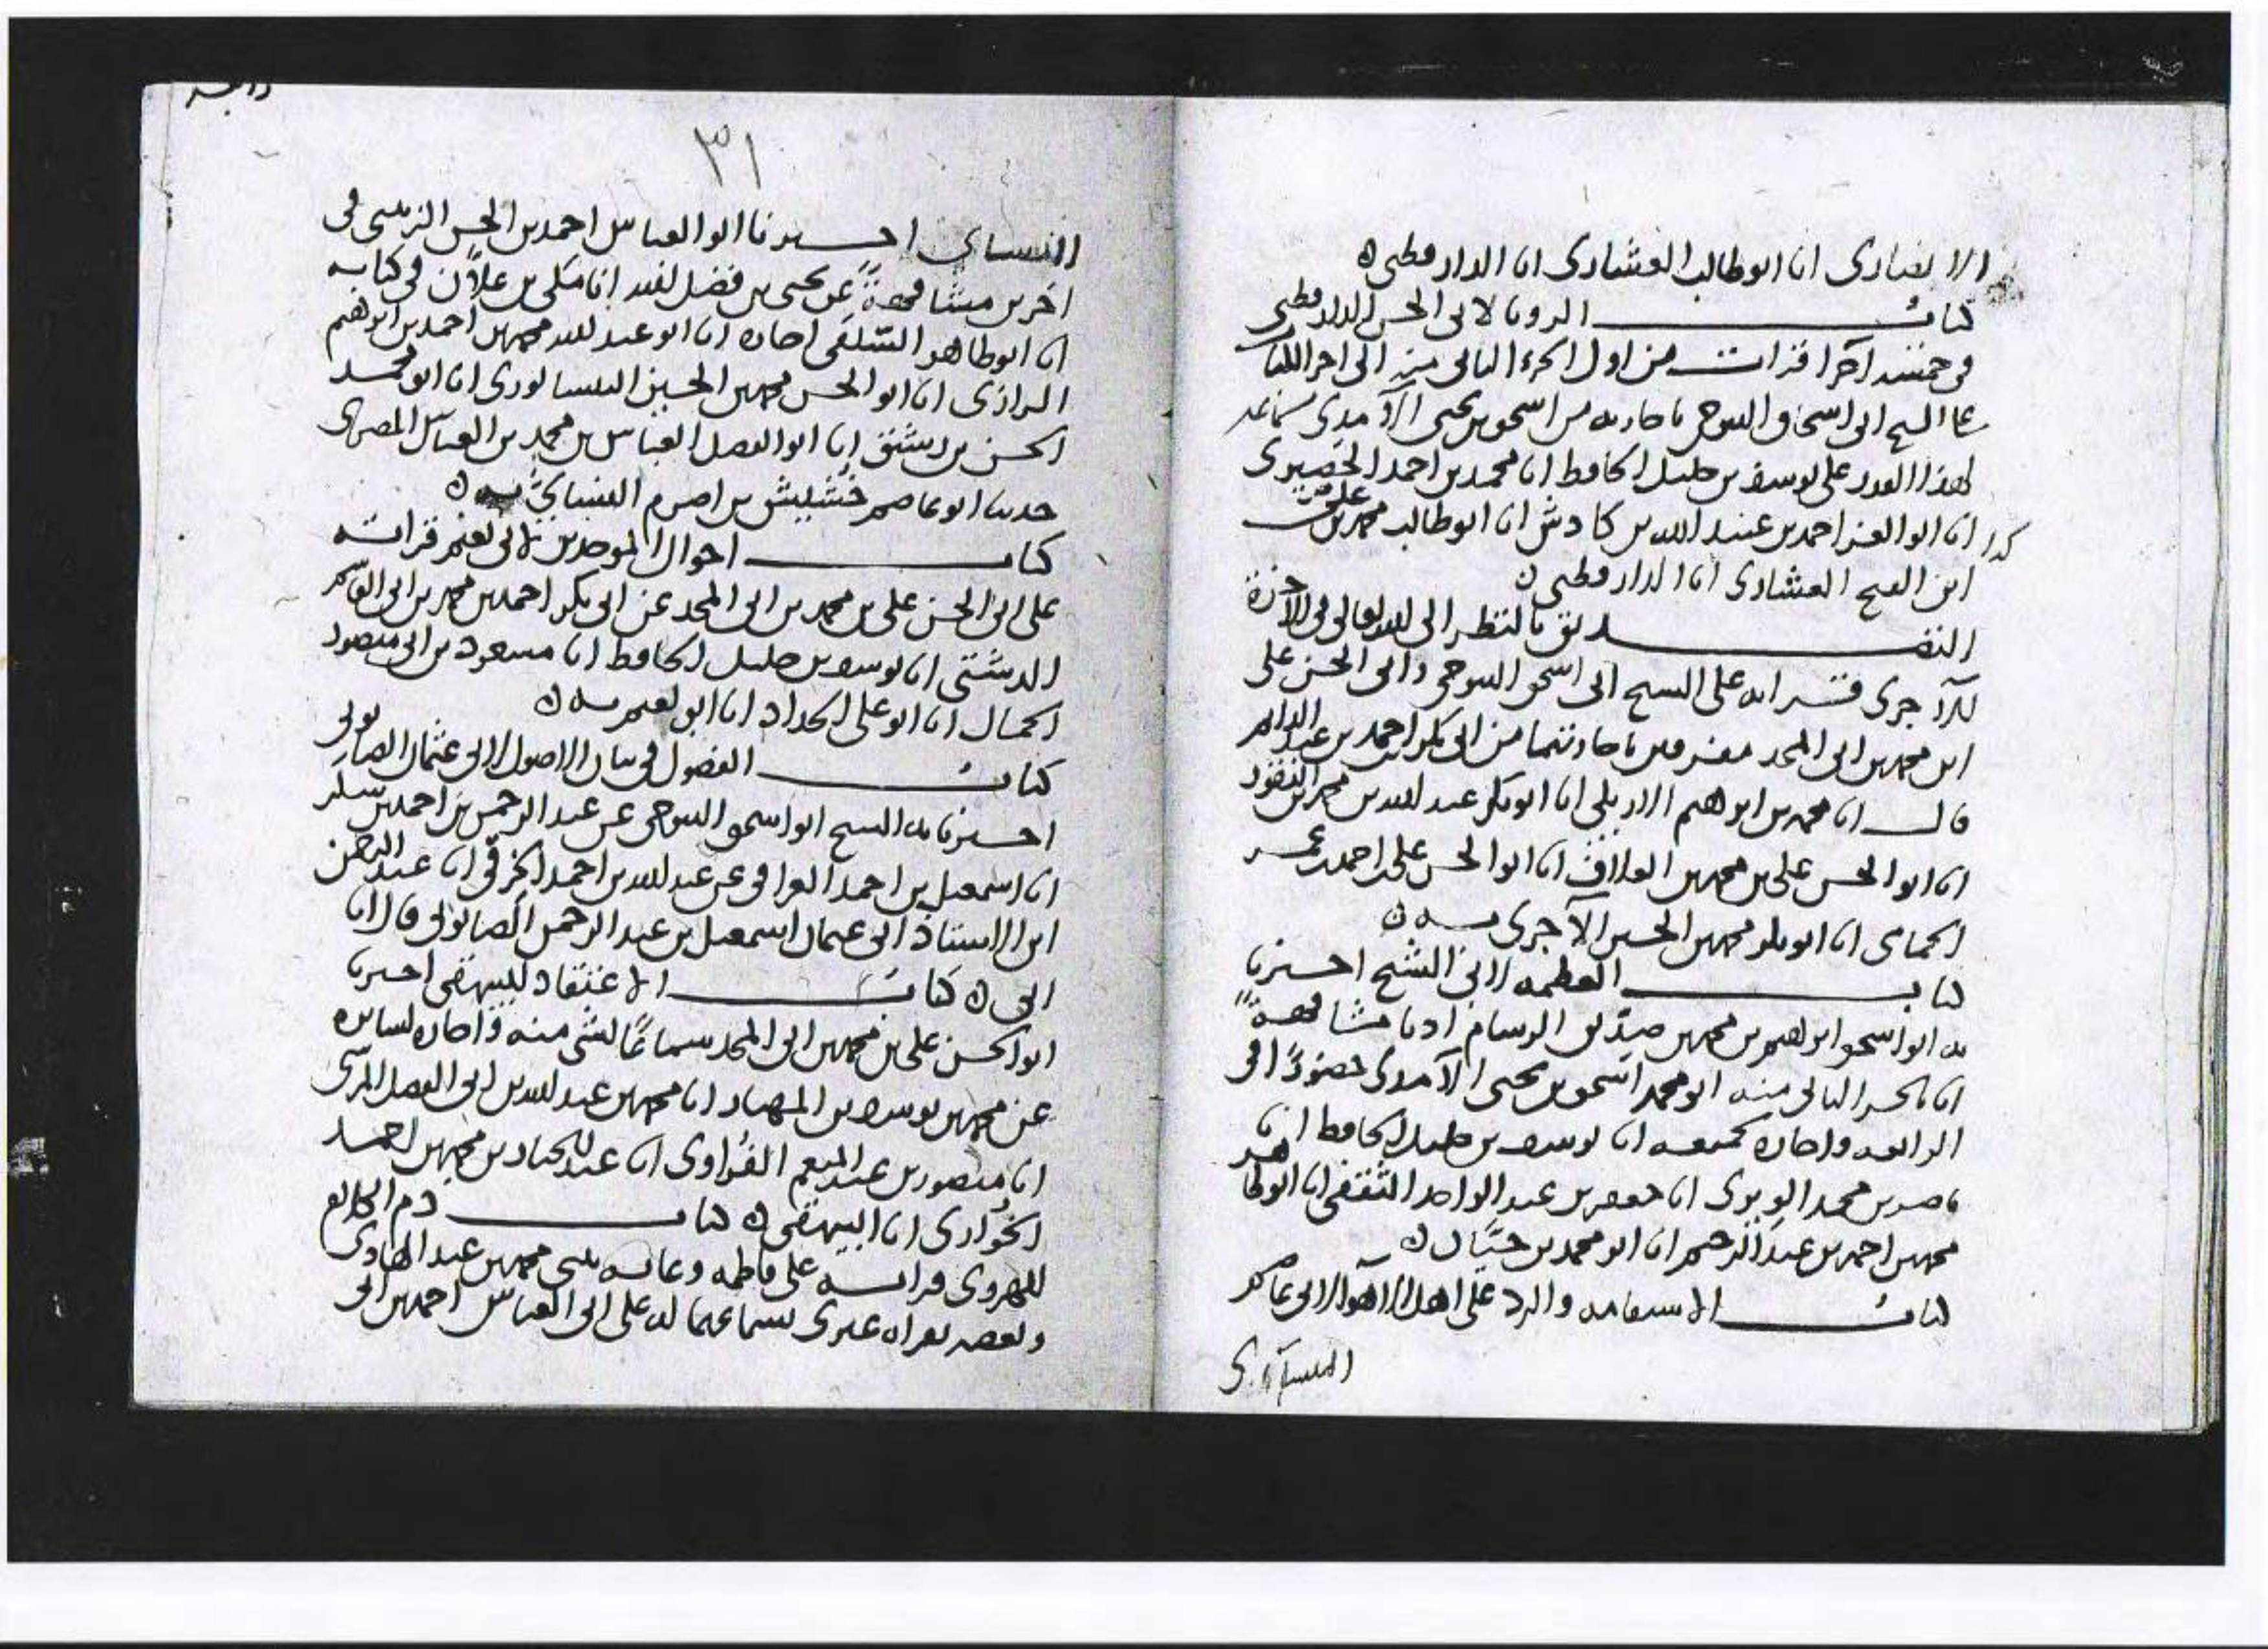 الانصارى انا ابو طالب العشارى انا الدارقطنى ه
كتاب الرويا لابى الحسن الدارقطنى
فى خمسة اجزا قرات من اول الجزء الثانى منه الى اخر الكتاب
على الشيخ ابى اسحاق التنوخى باجازته من اسحق بن يحيى الآمدى بسماعه
لهذا القدر على يوسف بن خليل الحافظ انا محمد بن احمد الحصيرى
كذا انا ابو العز احمد بن عبيد الله بن كادش انا ابو طالب محمد بن على
ابن الفتح العشارى انا الدارقطنى ه
التصديق بالنظر الى الله تعالى فى الآخرة
للآجرى قراته على الشيخ ابى اسحق التنوخى وابى الحسن على
ابن محمد بن ابى المجد مفترقين باجازتهما من ابى بكر احمد بن عبد الدايم
قال انا محمد بن ابرهيم الاربلى انا ابو بكر عبد الله بن محمد بن النقور
انا ابو الحسن على بن محمد بن العلاف انا ابو الحسن على بن احمد بن عمر
الحمامى انا ابو بكر محمد بن الحسين الآجرى به ه
كتاب العظمه لابى الشيخ اخبرنا
به ابو اسحق ابرهيم بن محمد بن صديق الرسام اذنا مشافهةً
انا بالجزء الثانى منه ابو محمد اسحق بن يحيى الآمدى حضورًا فى
الرابعه واجازه بجميعه انا يوسف بن خليل الحافظ انا
ناصر بن محمد الويرى انا جعفر بن عبد الواحد الثقفى انا ابو طاهر
محمد بن احمد بن عبد الرحيم انا ابو محمد بن حيّان ه
كتاب الاستقامه والرد على اهل الاهواء لابى عاصم
النسآى
٣١
النسائى اخبرنا ابو العباس احمد بن الحسن الزينبى فى
اخرين مشافهةً عن يحيى بن فضل الله انا مكى بن علّان فى كتابه
انا ابو طاهر السِّلَفى اجازه انا ابو عبد الله محمد بن احمد بن ابرهيم
الرازى انا ابو الحسن محمد بن الحسين النيسابورى انا ابو محمد
الحسن بن رشيق انا ابو الفضل العباس بن محمد بن العباس المصرى
حدثنا ابو عاصم خُشَيش بن اصرم النسائىّ به ه
كتاب احوال الموحدين لابى نعيم قراته
على ابى الحسن على بن محمد بن ابى المجد عن ابى بكر احمد بن محمد بن ابى القاسم
الدشتى انا يوسف بن خليل الحافظ انا مسعود بن ابى منصور
الجمال انا ابو على الحداد انا ابو نعيم به ه
كتاب الفصول فى بيان الاصول لابى عثمان الصابونى
اخبرنا به الشيخ ابو اسحق التنوخى عن عبد الرحمن بن احمد بن
انا اسمعيل بن احمد العراقى عن عبد الله بن احمد الخرقى انا عبد الرحمن
ابن الاستاذ ابى عثمان اسمعيل بن عبد الرحمن الصابونى قال انا
ابى ه كتاب الاعتقاد للبيهقى اخبرنا
ابو الحسن على بن محمد بن ابى المجد سماعًا لشى منه واجازه لسايره
عن محمد بن يوسف بن المهتار انا محمد بن عبد الله بن ابى الفضل المرسى
انا منصور بن عبد المنعم الفُراوى انا عبد الجبار بن محمد بن احمد
الخُوارى انا البيهقى ه كتاب ذم الكلام
للهروى قراته على فاطمه وعائشه بنتى محمد بن عبد الهادى
وبعضه بقراه غيرى بسماعهما له على ابى العباس احمد بن ابى